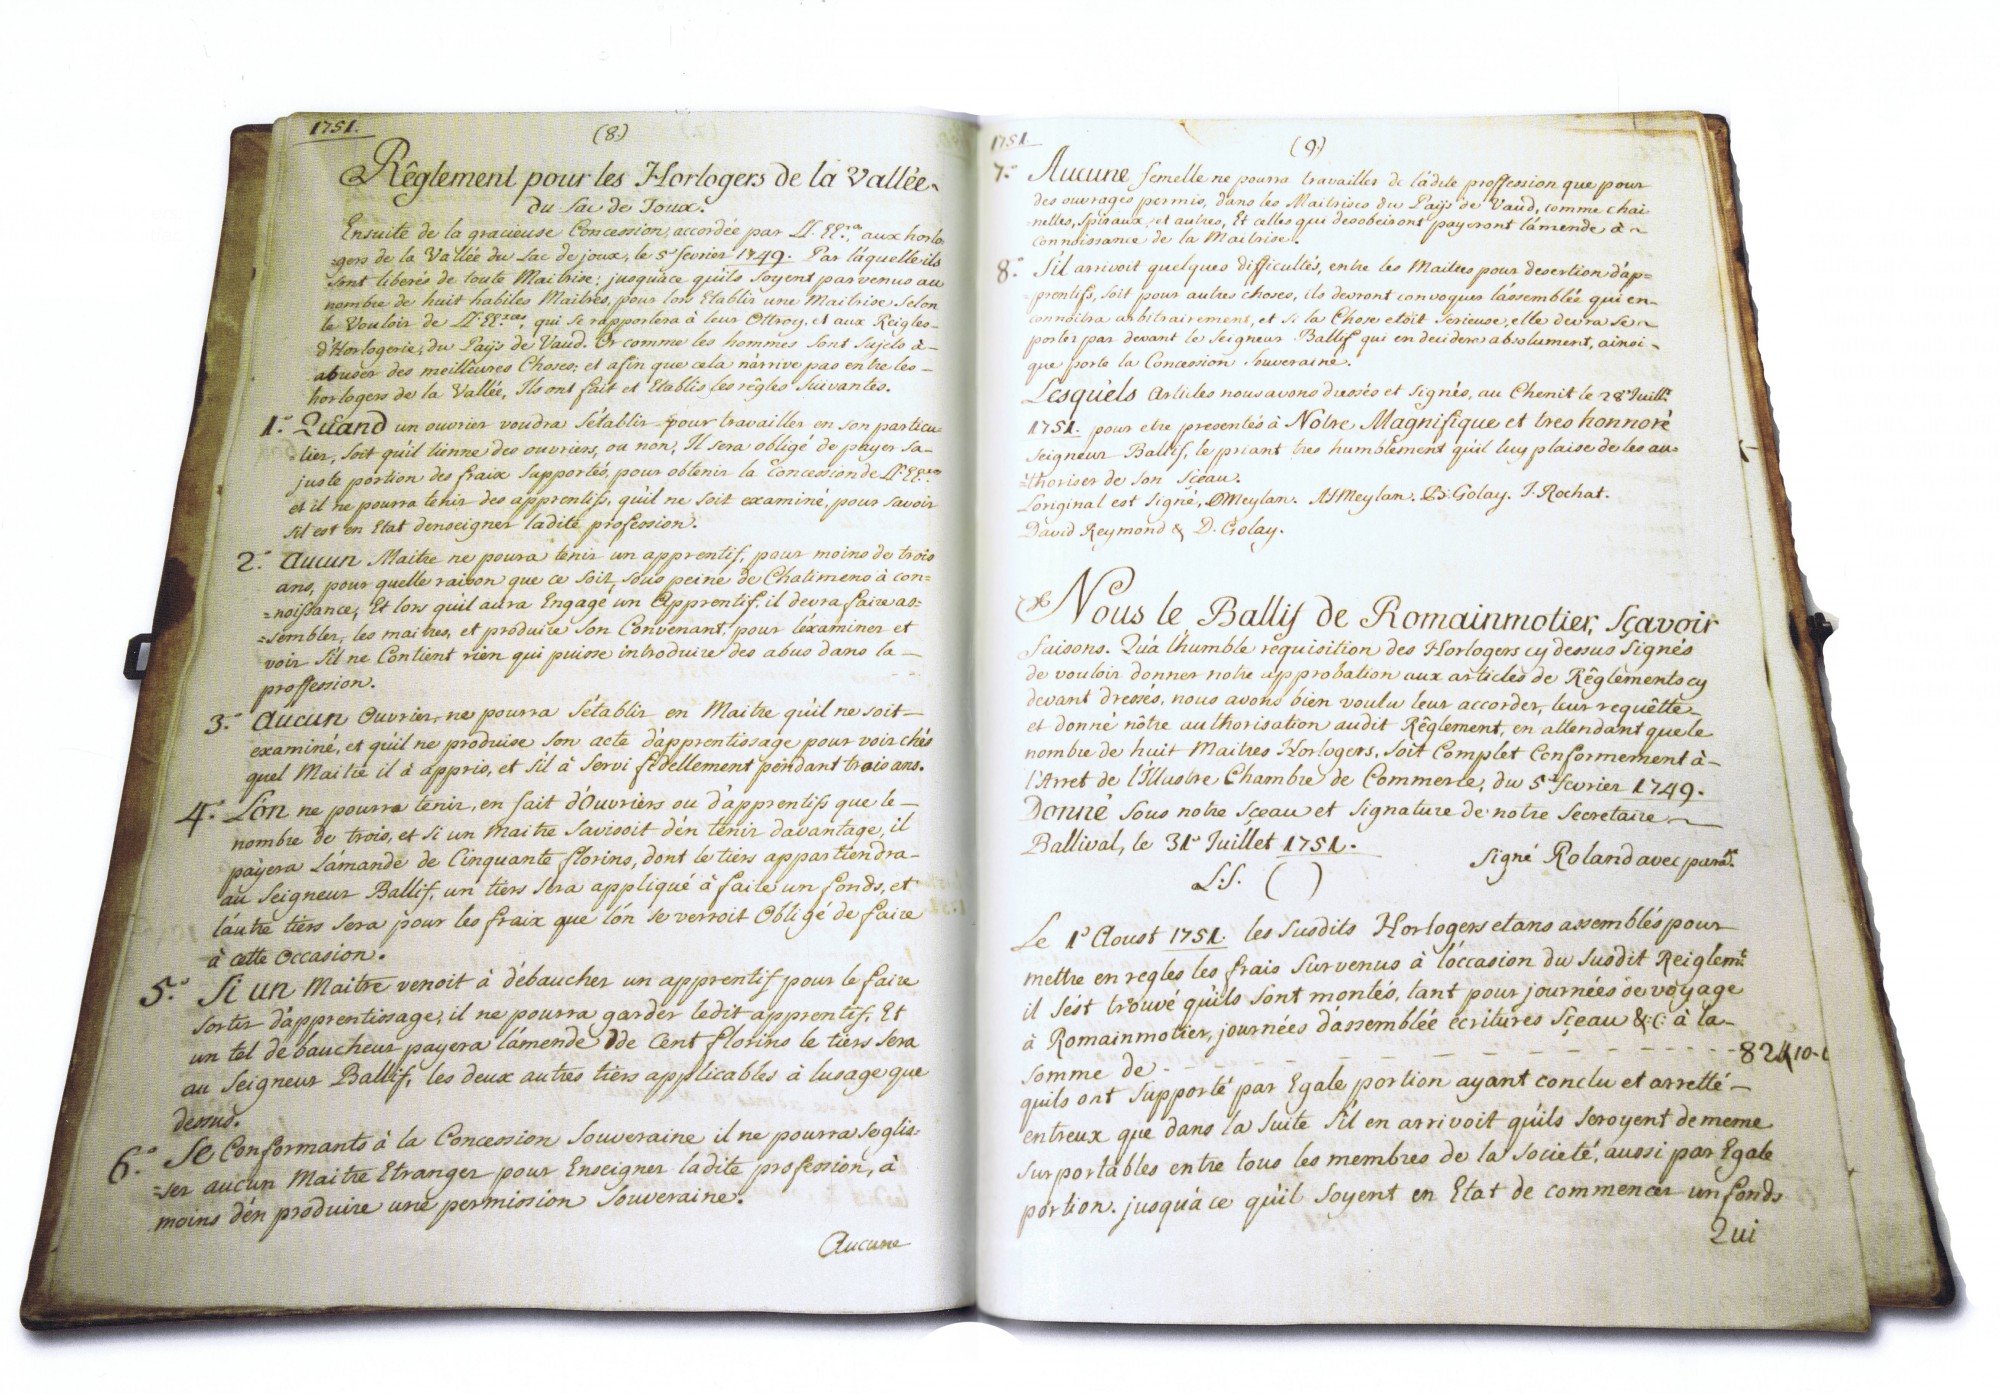 1751.
(8.)
Rêglement pour les Horlogers de la Vallée
du Lac de Joux.
Ensuite de la gracieuse Concession, accordée par LL. EE.ces aux horlo
=gers de la Vallée du Lac de joux, le 5e fevrier 1749. Par láquelle ils
sont liberés de toute Maitrise; jusquàce quils soyent parvenus au
nombre de huit habiles Maitres, pour lors Etablir une Maitrise selon
le Vouloir de LL. EE.xces, qui se rapportera à leur Ottroy, et aux Reigles
d'Horlogerie, du Païs de Vaud. Or comme les hommes sont sujets à
abuser des meillêures Choses; et afin que cela n'arrive pas entre les
horlogers de la Vallée, Ils ont fait et Etablis les rêgles suivantes.
1.° Quand un ouvrier voudra s'établir pour travailler en son particu
=lier, soit qu'il tienne des ouvriers, ou non, Il sera obligé de payer sa
juste portion des fraix supportés, pour obtenir la Concession de LL. EE.xces
et il ne pourra tenir des apprentifs, qu'il ne soit examiné, pour savoir
s'il est en Etat denseigner ladite profession.
2.° Aucun Maitre ne poura tenir un apprentif, pour moins de trois
ans, pour quelle raison que ce soit, sous peine de Chatimens à con=
=noissance; Et lors qu'il aura Engagé un Apprentif, il devra faire as=
=sembler, les maitres, et produire son Convenant, pour l'éxaminer et
voir s'il ne Contient rien qui puisse introduire des abus dans la
proffession.
3.° Aucun Ouvrier, ne pourra s'établir en Maitre qu'il ne soit
examiné, et qu'il ne produise son acte d'apprentissage pour voir chés
quel Maitre il à appris, et s'il à servi fidellement pendant trois ans.
4.° L'on ne pourra tenir, en fait d'Ouvriers ou d'apprentifs que le
nombre de trois, et si un Maitre s'avisoit d'én tenir davantage, il
payera l'amande de Cinquante florins, dont le tiers appartiendra
au Seigneur Ballif, un tiers sera appliqué à faire un fonds, et
láutre tiers sera pour les fraix que lón se verroit Obligé de faire
à cette Occasion.
5.° Si un Maitre venoit à débaucher un apprentif pour le faire
sortir d'apprentissage, il ne pourra garder ledit apprentif, Et
un tel débaucheur payera lámende de Cent florins le tiers sera
au Seigneur Ballif, les deux autres tiers applicables à lusage que
dessus.
6.° Se Conformants à la Concession Souveraine il ne pourra se glis=
=ser aucun Maitre Etranger pour Enseigner ladite profession, à
moins d'én produire une permission Souveraine.
Aucune
1751.
(9.)
7.° Aucune femelle ne pourra travailler de ladite proffession que pour
des ouvrages permis, dans les Maitrises du Païs de Vaud, comme chai
=nettes, spiraux, et autres, Et celles qui desobeiront payeront lámende à
connoissance de la Maitrise.
8.° S'il arrivoit quelques difficultés, entre les Maitres pour desertion d'ap=
=prentifs, soit pour autres choses, ils devront convoquer l'assemblée qui en=
connoitra arbitrairement, et si la Chose etoit serieuse, elle devra se
porter par devant le Seigneur Ballif qui en decidera absolument, ainsi
que porte la Concession Souveraine.
Lesquels Articles nous avons dressés et signés, au Chenit le 28e Juillt.
1751. pour etre presentés à Notre Magnifique et tres honnoré
Seigneur Ballif, le priant tres humblement qu'il luy plaise de les au=
=thoriser de son Sçeau.
L'original est signé, DMeylan. Meylan. Golay. J. Rochat.
David Reymond & D. Golay.
Nous le Ballif de Romainmotier, Sçavoir
faisons. Qu'à l'humble requisition des Horlogers cy dessus signés
de vouloir donner notre approbation aux articles de Rêglements cy
devant dressés, nous avons bien voulu leur accorder, leur requêtte
et donné nôtre authorisation audit Rêglement, en attendant que le
nombre de huit Maitres Horlogers, soit Complet Conformement à
l'Arret de l'Illustre Chambre de Commerce, du 5e fevrier 1749.
Donné sous notre Sçeau et Signature de notre Secretaire
Ballival, le 31e Juillet 1751.
Signé Roland avec para.
L.S. ( )
Le 1er Aoust 1751. les Susdits Horlogers etans assemblés pour
mettre en regles les frais survenus à l'óccasion du susdit Reiglemt.
il s'ést trouvé qu'ils sont montés, tant pour journées de voyage
à Romainmotier, journées d'assemblée écritures Sçeau &C: à la
somme de - - - - - - - - - - - - 82 10
quils ont supporté par Egale portion ayant conclu et arretté
entreux que dans la suite s'il en arrivoit qu'ils seroyent de meme
surportables entre tous les membres de la societé, aussi par Egale
portion. jusquàce qu'il soyent en Etat de commencer un fonds
Qui